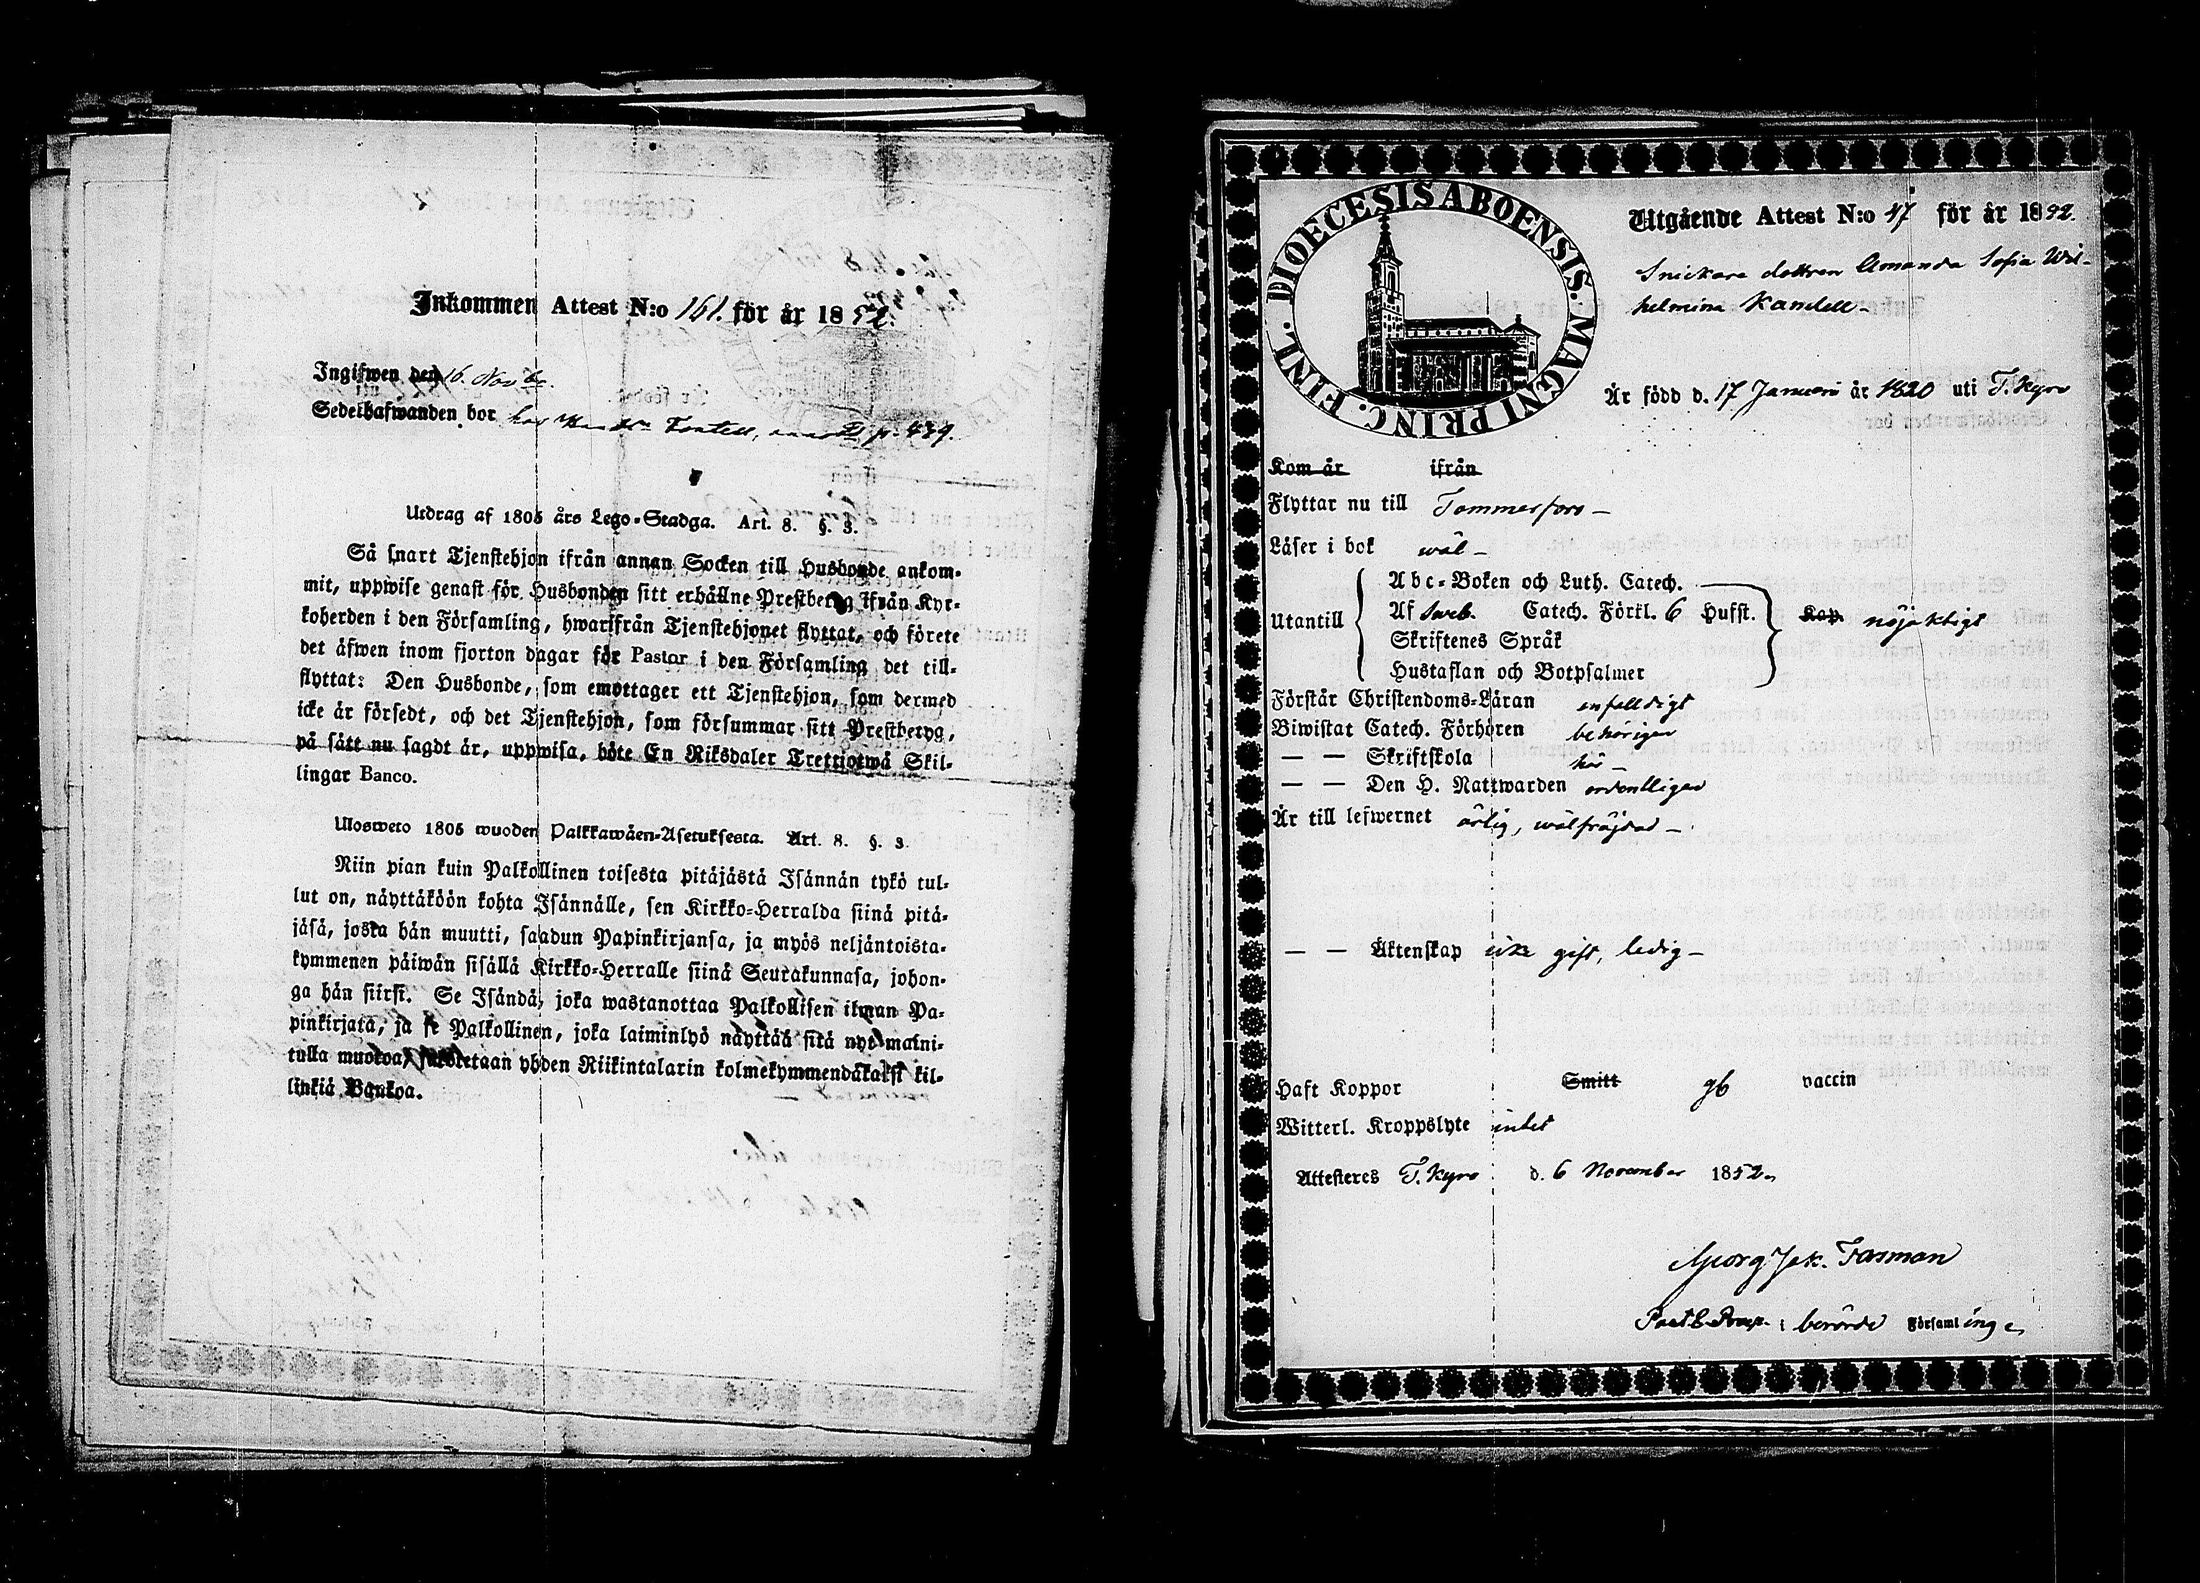 Inkommen Attest N:o 161. för år 1852.
Ingifwen den 16. Novbr.
Sedelhafwanden bor hos p. 439.
Utdrag af 1805 års Lego-Stadga. Art. 8. §. 3.
Så snart Tjenstehjon ifrån annan Socken till Husbonde ankom-
mit, uppwise genast för Husbonden sitt erhållne Prestbetyg ifrån Kyr-
koherden i den Församling, hwarifrån Tjenstehjonet flyttat, och förete
det äfwen inom fjorton dagar för Pastor i den Församling det till-
flyttat: Den Husbonde, som emottager ett Tjenstehjon, som dermed
icke är försedt, och det Tjenstehjon, som försummar sitt Prestbetyg,
på sätt nu sagdt är, uppwisa, böte En Riksdaler Trettiotwå Skil-
lingar Banco.
Ulosweto 1805 wuoden Palkkawäen-Asetuksesta. Art. 8. §. 3.
Niin pian kuin Palkollinen toisesta pitäjästä Isännän tykö tul-
lut on, näyttäköön kohta Isännälle, sen Kirkko-Herralda siinä pitä-
jäsä, josta hän muutti, saadun Papinkirjansa, ja myös neljäntoista-
kymmenen päiwän sisällä Kirkko-Herralle siinä Seurakunnasa, johon-
ga hän siirsi. Se Isändä, joka wastanottaa Palkollisen ilman Pa-
pinkirjata, ja se Palkollinen, joka laiminlyö näyttää sitä nyt maini-
tulla muotoa, sakotetaan yhden Riikintalarin kolmekymmendäkaksi kil-
linkiä Bankoa.
DIOECESIS ABOENSIS. MAGNI PRINC. FINL.
Utgående Attest N:o 47 för år 1852.
Snickare dottren Amanda Sofia Wil-
helmina Kandell-
Är född d. 17 Januari år 1820 uti T. Kyro
Kom år ifrån
Flyttar nu till Tammerfors-
Läser i bok wäl-
Utantill
Abc-Boken och Luth. Catech.
Af Sveb. Catech. Förkl. 6 Hufst.
Skriftenes Språk
Hustaflan och Botpsalmer
Kap. nöjaktigt
Förstår Christendoms-Läran enfaldigt
Biwistat Catech. Förhören behörigen
— — Skriftskola här-
— — Den H. Nattwarden ordentligen
Är till lefwernet ärlig, wälfräjdad-
— — Äktenskap icke gift, ledig-
Haft Koppor Smitt gb vaccin
Witterl. Kroppslyte intet
Attesteres T. Kyro d. 6 November 1852.
Georg Jak. Forsman
Past & Praep. i berörde Församlinge